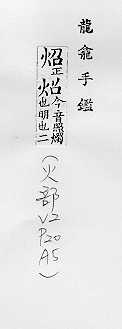 龍龕手鑑
炤正炤今音照燭也明也二
(火部
V2
P20
A5)